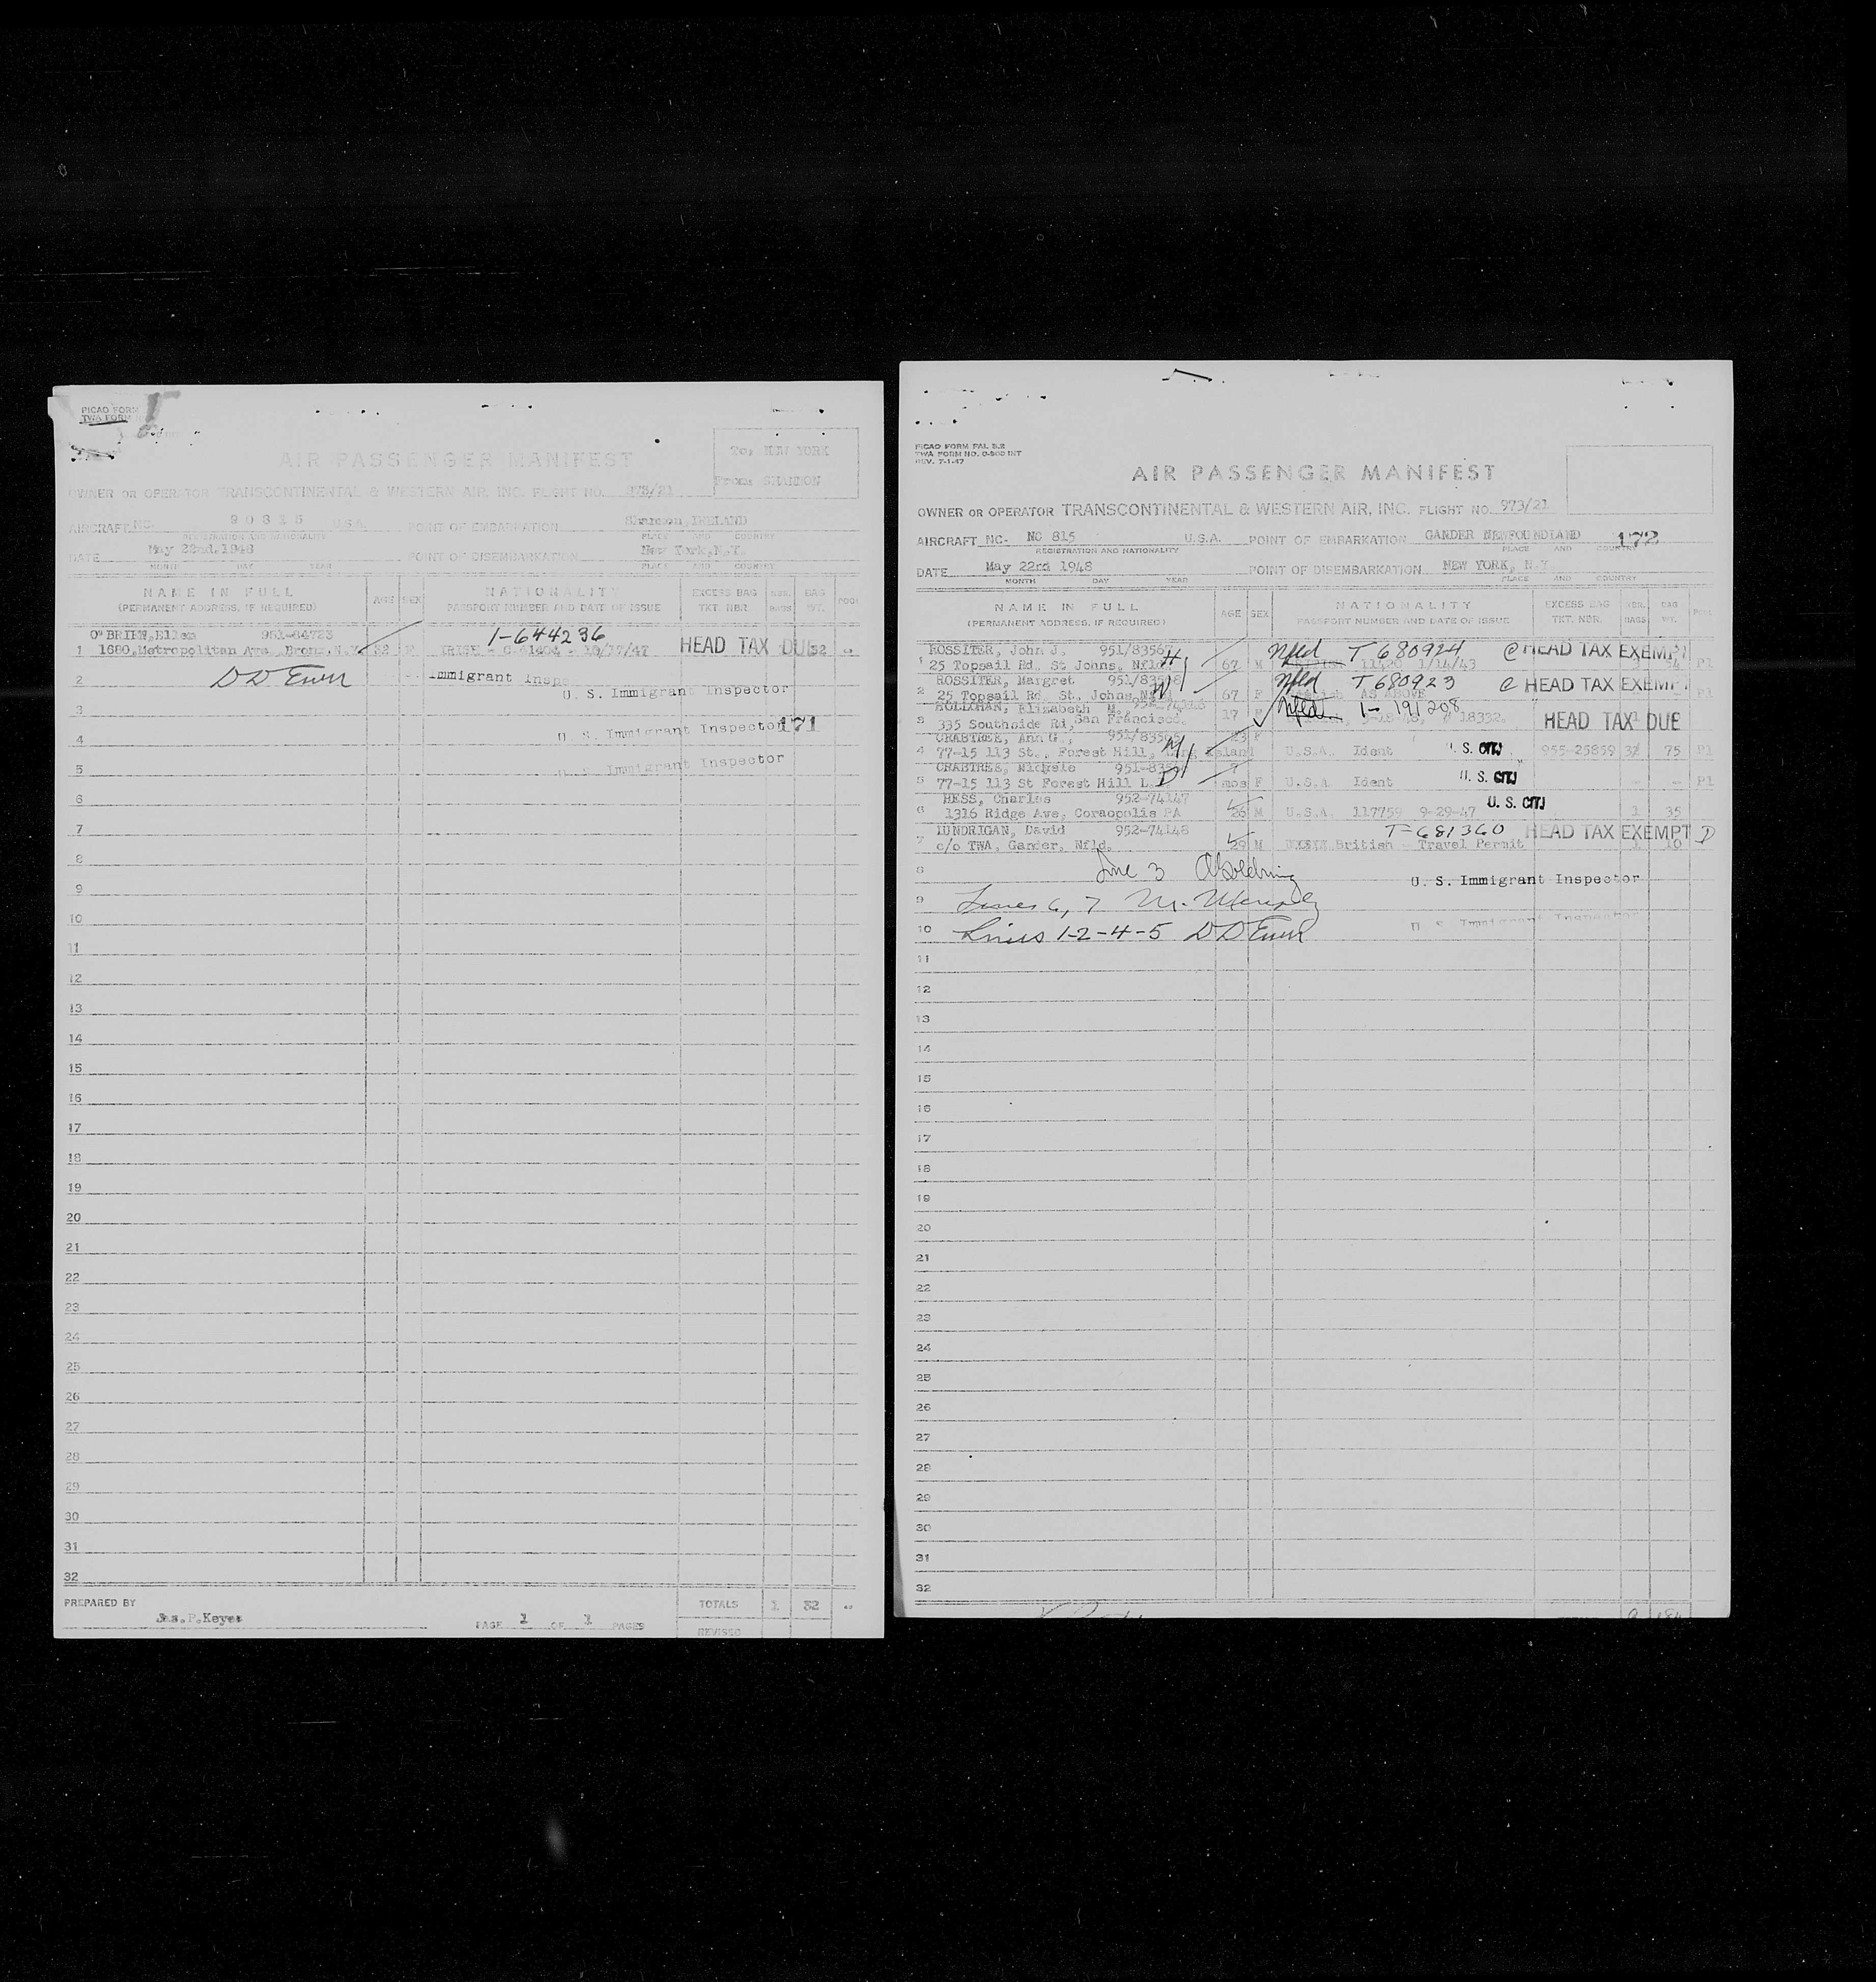 PICAO FORM
TWA FORM
AIR PASSENGER MANIFEST
To, NEW YORK
From: SHANNON
OWNER OR OPERATOR TRANSCONTINENTAL & WESTERN AIR, INC. FLIGHT NO. 973/21
AIRCRAFT NC. 90815 U.S.A. POINT OF EMBARKATION Shannon, IRELAND
REGISTRATION AND NATIONALITY PLACE AND COUNTRY
DATE May 22nd.1948 POINT OF DISEMBARKATION New York, N.Y.
MONTH DAY YEAR PLACE AND COUNTRY
NAME IN FULL AGE SEX NATIONALITY EXCESS BAG NBR. BAG POOL
(PERMANENT ADDRESS, IF REQUIRED) PASSPORT NUMBER AND DATE OF ISSUE TKT. NBR. BAGS WT.
O'BRIEN, Ellen 951-84723 1-644236
1 1680, Metropolitan Ave. Bronx, N.Y. 32 F IRISH - HEAD TAX DUE 32
2 D D Ewer Immigrant Inspe
U. S. Immigrant Inspector
3
4 U. S. Immigrant Inspector 171
5 U. S. Immigrant Inspector
6
7
8
9
10
11
12
13
14
15
16
17
18
19
20
21
22
23
24
25
26
27
28
29
30
31
32
PREPARED BY Jas. P. Keyes PAGE 1 OF 1 PAGES TOTALS 1 32
REVISED
PICAO FORM PAL 8.2
TWA FORM NO. O-500 INT
REV. 7-1-47
AIR PASSENGER MANIFEST
OWNER OR OPERATOR TRANSCONTINENTAL & WESTERN AIR, INC. FLIGHT NO. 973/21
AIRCRAFT NC- NC 815 U.S.A. POINT OF EMBARKATION GANDER NEWFOUNDLAND 172
REGISTRATION AND NATIONALITY PLACE AND COUNTRY
DATE May 22nd 1948 POINT OF DISEMBARKATION NEW YORK, N.Y.
MONTH DAY YEAR PLACE AND COUNTRY
NAME IN FULL AGE SEX NATIONALITY EXCESS BAG NBR. BAG POOL
(PERMANENT ADDRESS, IF REQUIRED) PASSPORT NUMBER AND DATE OF ISSUE TKT. NBR. BAGS WT.
ROSSITER, John J. 951/83567 Nfld T 680924 @ HEAD TAX EXEMPT
1 25 Topsail Rd. St Johns, Nfld. H 67 M 11420 1/14/43 54 Pl
ROSSITER, Margret 951/83568 Nfld T 680923 @ HEAD TAX EXEMPT
2 25 Topsail Rd. St. Johns Nfld W 67 F AS ABOVE Pl
HOLLOHAN, Elizabeth M. Nfld. 1-191208
3 335 Southside Rd, San Francisco. 17 F 18332. HEAD TAX DUE
CRABTREE, Ann G., 951/83565 23 F
4 77-15 113 St., Forest Hill, Long Island M U.S.A. Ident U. S. CITJ 955-25859 75 Pl
CRABTREE, Michele 951-8356 9
5 77-15 113 St Forest Hill L.I. D mos F U.S.A Ident U. S. CITJ - - Pl
HESS, Charles 952-74147 U. S. CITJ
6 1316 Ridge Ave, Coraopolis PA 26 M U.S.A. 117759 9-29-47 1 35
LUNDRIGAN, David 952-74148 T-681360 HEAD TAX EXEMPT D
7 c/o TWA, Gander, Nfld. 29 M British - Travel Permit 1 10
8 Line 3 U. S. Immigrant Inspector
9 Lines 6, 7
10 Lines 1-2-4-5 D D Ewer U S Immigrant Inspector
11
12
13
14
15
16
17
18
19
20
21
22
23
24
25
26
27
28
29
30
31
32